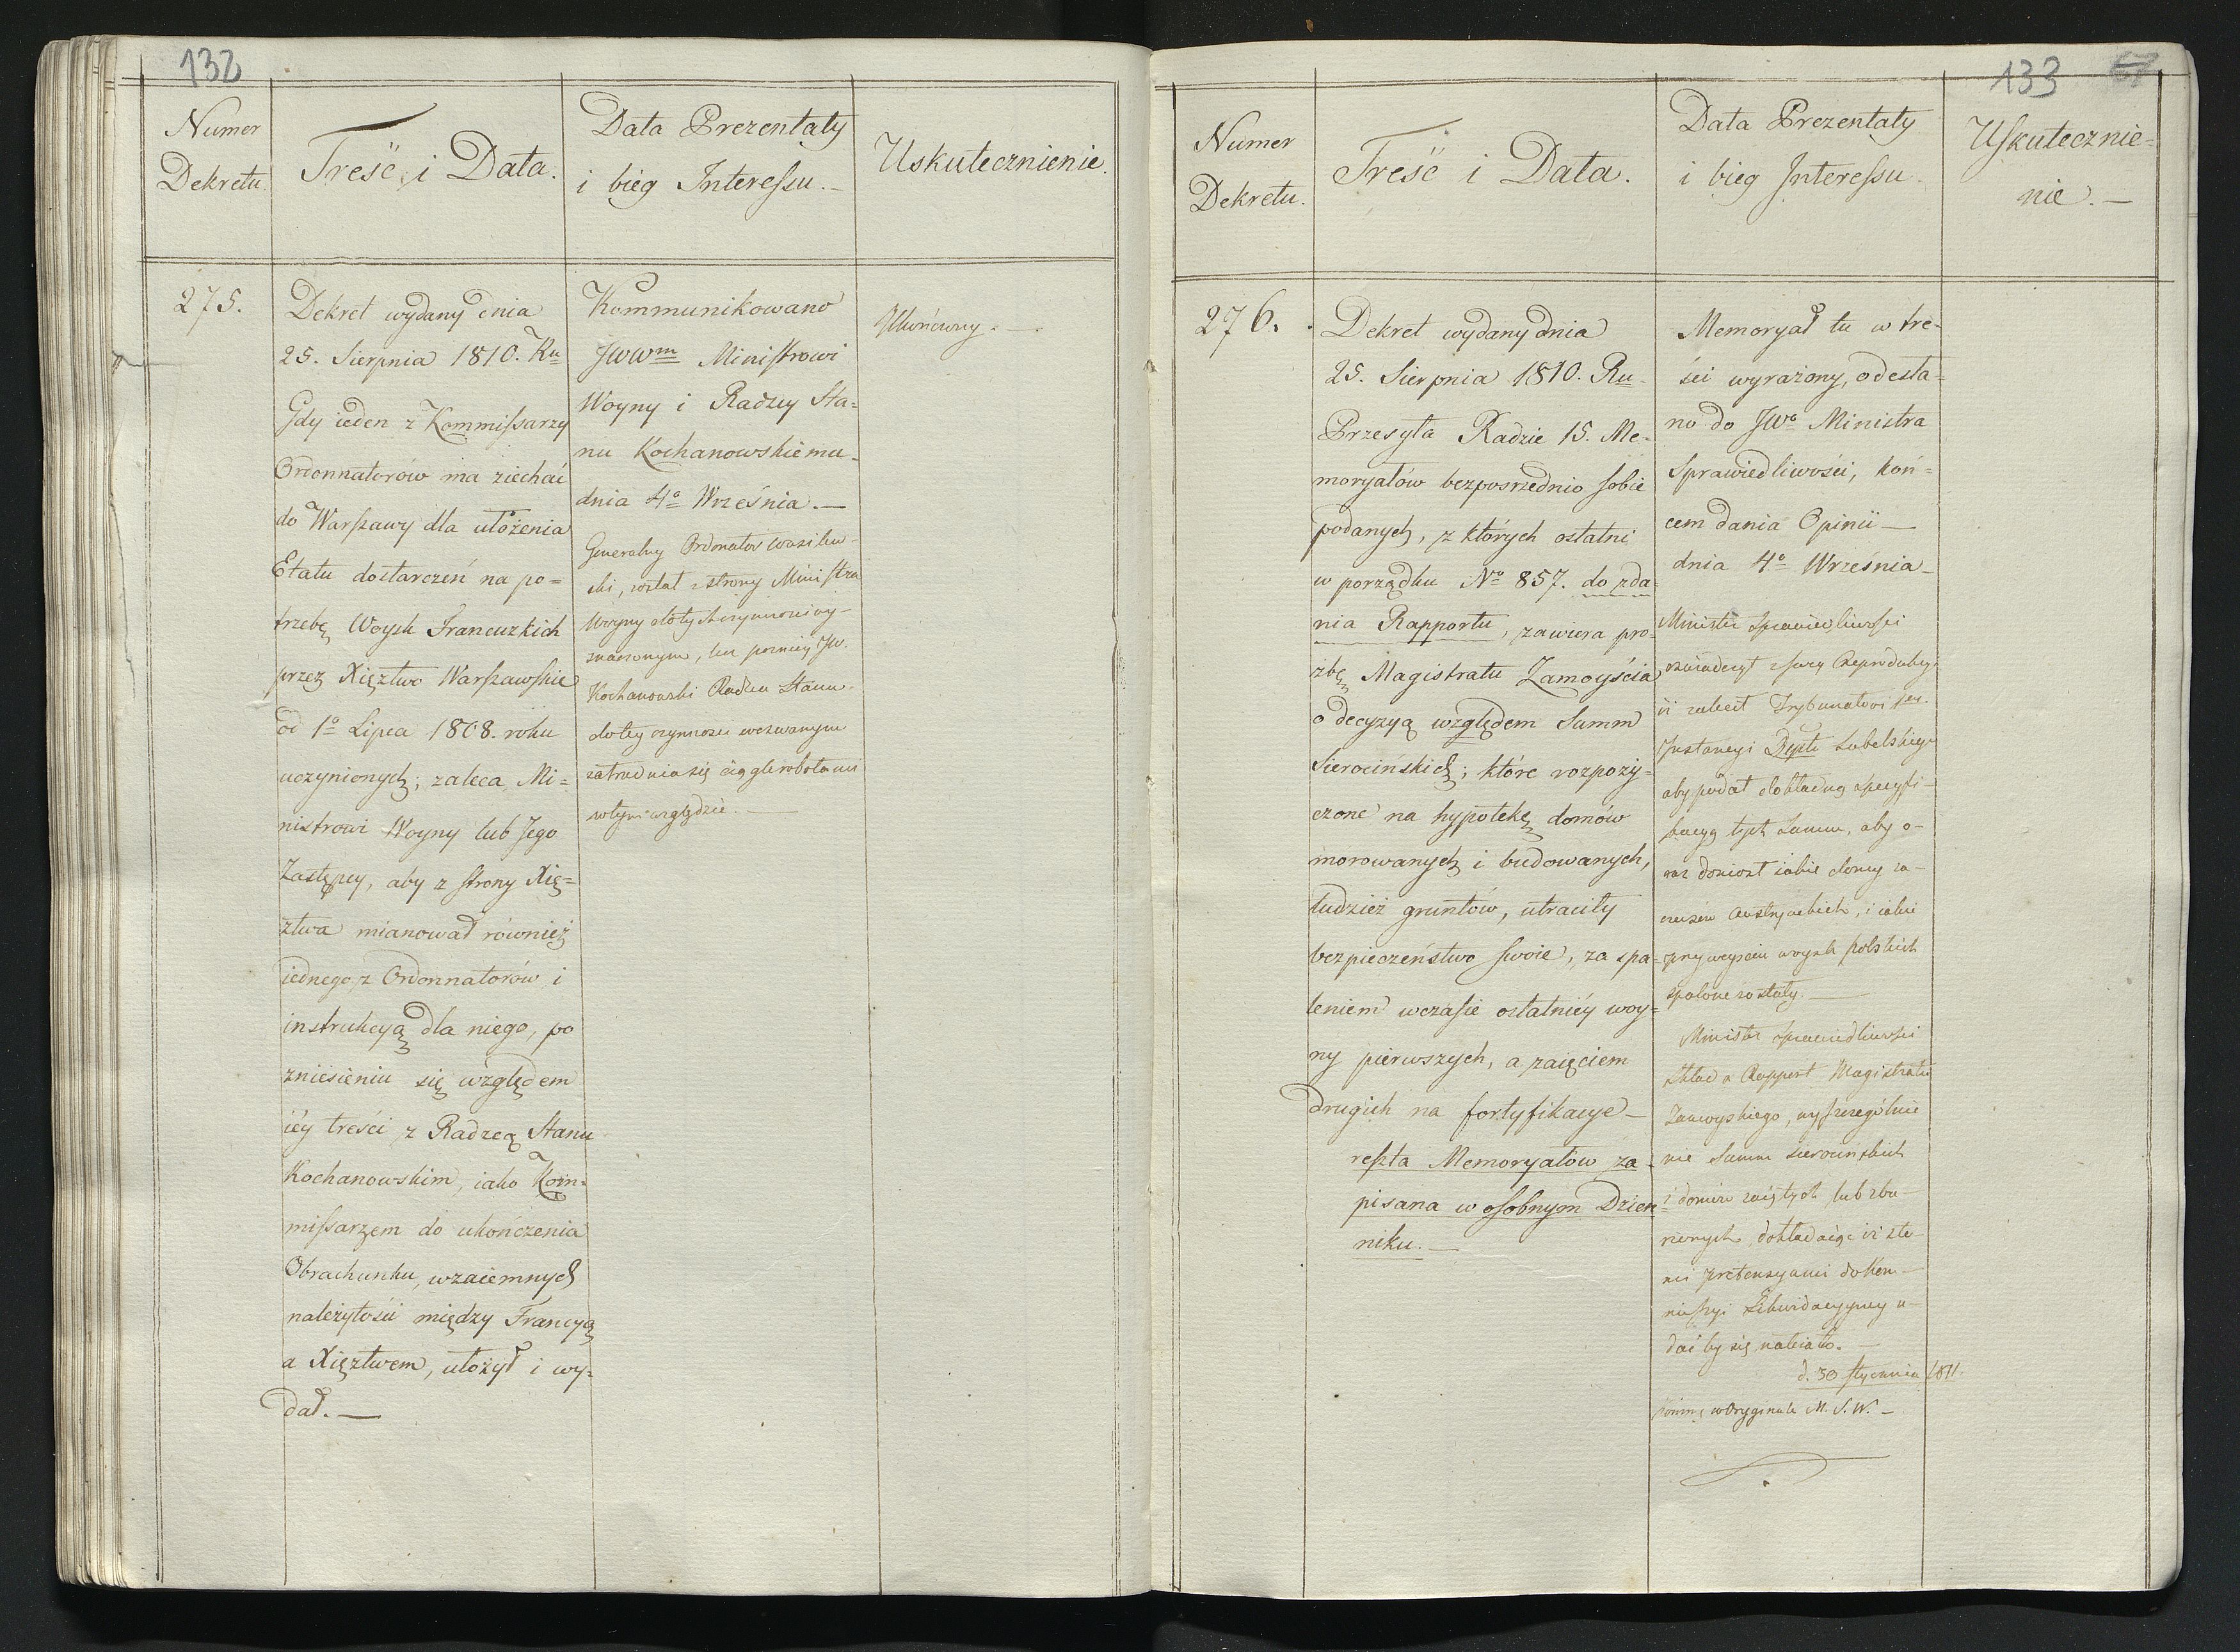 132
Numer
Dekretu.
Treść i Data.
Data Prezentaty
i bieg Interessu.—
Uskutecznienie.
275.
Dekret wydany dnia
25. Sierpnia 1810. Ru
Gdy ieden z Kommissarzy
Ordonnatorów ma ziechać
do Warszawy dla ułożenia
Etatu dostarczeń na po=
trzebę Woysk Francuzkich
przez Xięztwo Warszawskie
od 1o Lipca 1808. roku
uczynionych; zaleca Mi=
nistrowi Woyny lub Jego
Zastępcy, aby z strony Xię=
ztwa mianował również
iednego z Ordonnatorów i
instrukcyą dla niego, po
zniesieniu się względem
iéy treści z Radzcą Stanu
Kochanowskim, iako Kom=
missarzem do ukończenia
Obrachunku, wzaiemnych
należytości między Francyą
a Xięztwem, ułożył i wy=
dał.—
Kommunikowano
JWWm Ministrowi
Woyny i Radzcy Sta=
nu Kochanowskiemu
dnia 4o Września.—
Generalny Ordonator Wasilew-
ski, został z strony Ministra
Woyny do tych czynności wy-
znaczonym, lecz pozniey JW.
Kochanowski Radca Stanu
do tey czynnosci wezwanym
zatrudnia się ciągle robotami
w tym względzie.—
Ukończony.—
133
67
Numer
Dekretu.
Treść i Data.
Data Prezentaty
i bieg Interessu
Uskutecznie=
nie.—
276.
Dekret wydany dnia
25. Sierpnia 1810. Ru
Przesyła Radzie 15. Me-
moryałów bezposrzednio sobie
podanych, z których ostatni
w porządku No 857. do zda=
nia Rapportu, zawiera pro-
źbę Magistratu Zamoyścia
o decyzyą względem Summ
Sierocińskich; które rozpoży=
czone na hypotekę domów
morowanych i budowanych,
tudzież gruntów, utraciły
bezpieczeństwo swoie, za spa=
leniem w czasie ostatniéy woy=
ny pierwszych, a zaięciem
drugich na fortyfikacye—
reszta Memoryałów za-
pisana w osobnym Dzien
niku.—
Memoryał tu w tre-
ści wyrażony, odesła=
no do JWo Ministra
Sprawiedliwości, koń=
cem dania Opinii—
dnia 4o Września—
Minister Sprawiedliwosci
oświadczył
iż zalecił Trybunałowi
Instancyi Deptu Lubelskiego
aby podał dokładną specyfi-
kacyą tych Summ, aby o-
raz doniosł iakie domy za
czasów Austryackich, i iakie
przy weysciu woysk polskich
spalone zostały.—
Minister Sprawiedliwosci
składa Rapport Magistratu
Zamoyskiego, wyszczegolnie
nie Summ Sierocińskich
i domów zaiętych lub zbu-
rzonych dokładaiąc iż z te-
mi pretensyami do Kom-
missyi Likwidacyyney u-
dać by się należało.—
d. 30 Stycznia 1811.
w Oryginale M. S. W.—